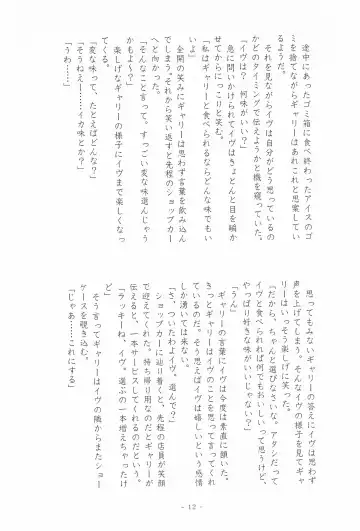 途中にあったゴミ箱に食べ終わったアイスのゴ
ミを捨てながらギャリーはあれこれと思案してい
るようだ。
それを見ながらイヴは自分がどう思っているの
かどのタイミングで伝えようかと機を窺っていた。
「イヴは？　何味がいい？」
急に問いかけられてイヴはきょとんと目を瞬か
せてからにっこりと笑む。
「私はギャリーと食べられるならどんな味でもい
いよ」
全開の笑みにギャリーは思わず言葉を飲み込ん
でしまう。それから笑い返すと先程のショップカー
へと向かった。
「そんなこと言って、すっごい変な味選んじゃう
かもよ～？」
楽しげなギャリーの様子にイヴまで楽しくなっ
てくる。
「変な味って、たとえばどんな？」
「そうねえ……イカ味とか？」
「うわ……」
思ってもみないギャリーの答えにイヴは思わず
声を上げてしまう。そんなイヴの様子を見てギャ
リーはいっそう楽しげに笑った。
「だから、ちゃんと選びなさいな。アタシだって
イヴと食べられれば何でもおいしいって思うけど、
やっぱり好きな味がいいでしょ？」
「うん」
ギャリーの言葉にイヴは今度は素直に頷いた。
きっとギャリーはイヴのことを思って言ってくれ
ているのだ。そう思えばイヴは嬉しいという感情
しか湧いては来ない。
「さ、ついたわよイヴ。選んで？」
ショップカーに辿り着くと、先程の店員が笑顔
で迎えてくれた。持ち帰り用なのだとギャリーが
伝えると、一本サービスしてくれるのだという。
「ラッキーね、イヴ。選ぶの一本増えちゃったけ
ど」
そう言ってギャリーはイヴの隣からまたショー
ケースを覗き込む。
「じゃあ……これにする」
- 12 -